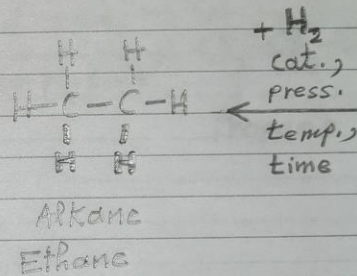 H H
H-C-C-H
H H
+ H₂
cat.,
press.
temp.,
time
Alkane
Ethane